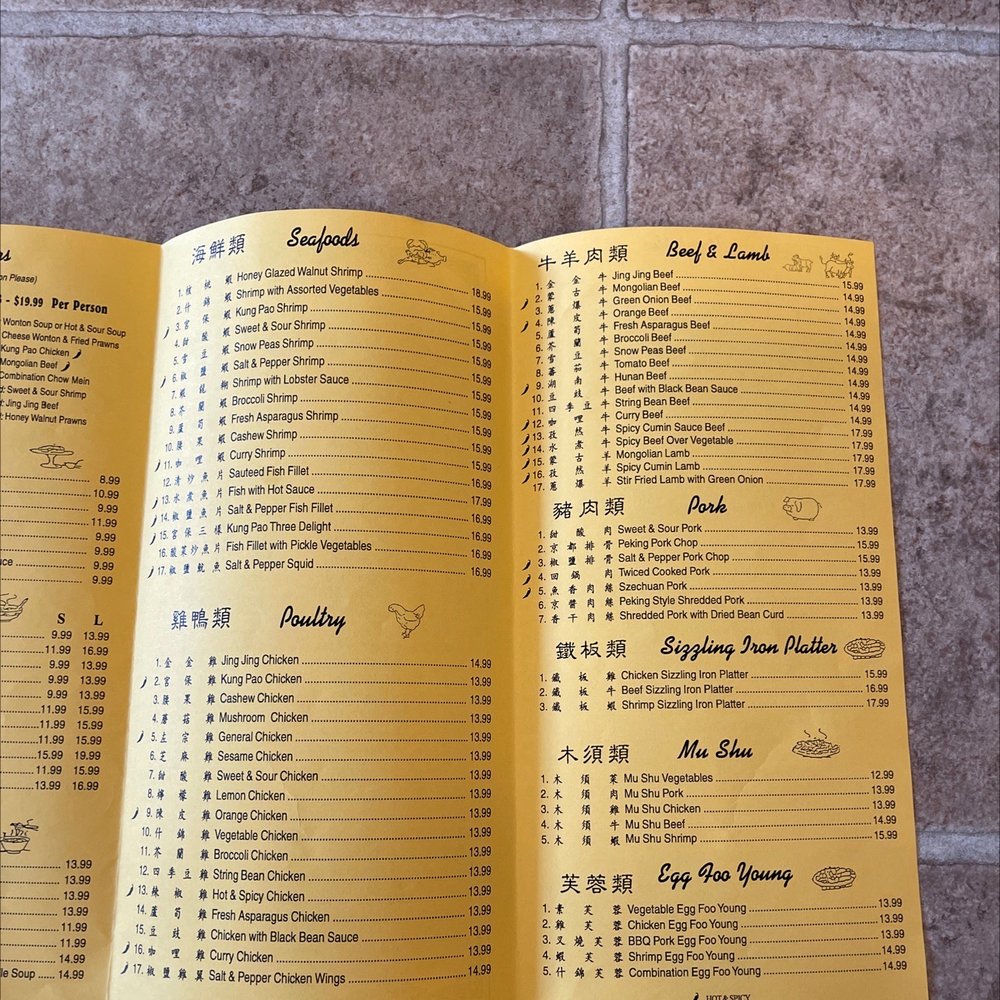 rs
on Please)
- $19.99 Per Person
Wonton Soup or Hot & Sour Soup
Cheese Wonton & Fried Prawns
Kung Pao Chicken
Mongolian Beef
Combination Chow Mein
d: Sweet & Sour Shrimp
d: Jing Jing Beef
t: Honey Walnut Prawns
8.99
10.99
9.99
11.99
9.99
9.99
9.99
S L
9.99 13.99
11.99 16.99
9.99 13.99
9.99 13.99
9.99 13.99
11.99 15.99
11.99 15.99
11.99 15.99
15.99 19.99
11.99 15.99
13.99 16.99
13.99
13.99
13.99
13.99
11.99
11.99
le Soup 14.99
海鮮類 Seafoods
1. 核桃蝦 Honey Glazed Walnut Shrimp 18.99
2. 什錦蝦 Shrimp with Assorted Vegetables 15.99
3. 宮保蝦 Kung Pao Shrimp 15.99
4. 甜酸蝦 Sweet & Sour Shrimp 15.99
5. 雪豆蝦 Snow Peas Shrimp 15.99
6. 椒鹽蝦 Salt & Pepper Shrimp 15.99
7. 蝦龍糊 Shrimp with Lobster Sauce 15.99
8. 芥蘭蝦 Broccoli Shrimp 15.99
9. 蘆筍蝦 Fresh Asparagus Shrimp 15.99
10. 腰果蝦 Cashew Shrimp 15.99
11. 咖哩蝦 Curry Shrimp 15.99
12. 清炒魚片 Sauteed Fish Fillet 16.99
13. 水煮魚片 Fish with Hot Sauce 17.99
14. 椒鹽魚片 Salt & Pepper Fish Fillet 16.99
15. 宮保三樣 Kung Pao Three Delight 16.99
16. 酸菜炒魚片 Fish Fillet with Pickle Vegetables 16.99
17. 椒鹽魷魚 Salt & Pepper Squid 16.99
雞鴨類 Poultry
1. 金金雞 Jing Jing Chicken 14.99
2. 宮保雞 Kung Pao Chicken 13.99
3. 腰果雞 Cashew Chicken 13.99
4. 蘑菇雞 Mushroom Chicken 13.99
5. 左宗雞 General Chicken 13.99
6. 芝麻雞 Sesame Chicken 13.99
7. 甜酸雞 Sweet & Sour Chicken 13.99
8. 檸檬雞 Lemon Chicken 13.99
9. 陳皮雞 Orange Chicken 13.99
10. 什錦雞 Vegetable Chicken 13.99
11. 芥蘭雞 Broccoli Chicken 13.99
12. 四季豆雞 String Bean Chicken 13.99
13. 辣椒雞 Hot & Spicy Chicken 13.99
14. 蘆筍雞 Fresh Asparagus Chicken 13.99
15. 豆豉雞 Chicken with Black Bean Sauce 13.99
16. 咖哩雞 Curry Chicken 13.99
17. 椒鹽雞翼 Salt & Pepper Chicken Wings 14.99
牛羊肉類 Beef & Lamb
1. 金金牛 Jing Jing Beef 15.99
2. 蒙古牛 Mongolian Beef 14.99
3. 蔥爆牛 Green Onion Beef 14.99
4. 陳皮牛 Orange Beef 14.99
5. 蘆筍牛 Fresh Asparagus Beef 14.99
6. 芥蘭牛 Broccoli Beef 14.99
7. 雪豆牛 Snow Peas Beef 14.99
8. 蕃茄牛 Tomato Beef 14.99
9. 湖南牛 Hunan Beef 14.99
10. 豆豉牛 Beef with Black Bean Sauce 14.99
11. 四季豆牛 String Bean Beef 14.99
12. 咖哩牛 Curry Beef 14.99
13. 孜然牛 Spicy Cumin Sauce Beef 17.99
14. 水煮牛 Spicy Beef Over Vegetable 17.99
15. 蒙古羊 Mongolian Lamb 17.99
16. 孜然羊 Spicy Cumin Lamb 17.99
17. 蔥爆羊 Stir Fried Lamb with Green Onion 17.99
豬肉類 Pork
1. 甜酸肉 Sweet & Sour Pork 13.99
2. 京都排骨 Peking Pork Chop 15.99
3. 椒鹽排骨 Salt & Pepper Pork Chop 15.99
4. 回鍋肉 Twiced Cooked Pork 13.99
5. 魚香肉絲 Szechuan Pork 13.99
6. 京醬肉絲 Peking Style Shredded Pork 13.99
7. 香干肉絲 Shredded Pork with Dried Bean Curd 13.99
鐵板類 Sizzling Iron Platter
1. 鐵板雞 Chicken Sizzling Iron Platter 15.99
2. 鐵板牛 Beef Sizzling Iron Platter 16.99
3. 鐵板蝦 Shrimp Sizzling Iron Platter 17.99
木須類 Mu Shu
1. 木須菜 Mu Shu Vegetables 12.99
2. 木須肉 Mu Shu Pork 13.99
3. 木須雞 Mu Shu Chicken 13.99
4. 木須牛 Mu Shu Beef 14.99
5. 木須蝦 Mu Shu Shrimp 15.99
芙蓉類 Egg Foo Young
1. 素芙蓉 Vegetable Egg Foo Young 13.99
2. 雞芙蓉 Chicken Egg Foo Young 13.99
3. 叉燒芙蓉 BBQ Pork Egg Foo Young 13.99
4. 蝦芙蓉 Shrimp Egg Foo Young 14.99
5. 什錦芙蓉 Combination Egg Foo Young 14.99
HOT & SPICY